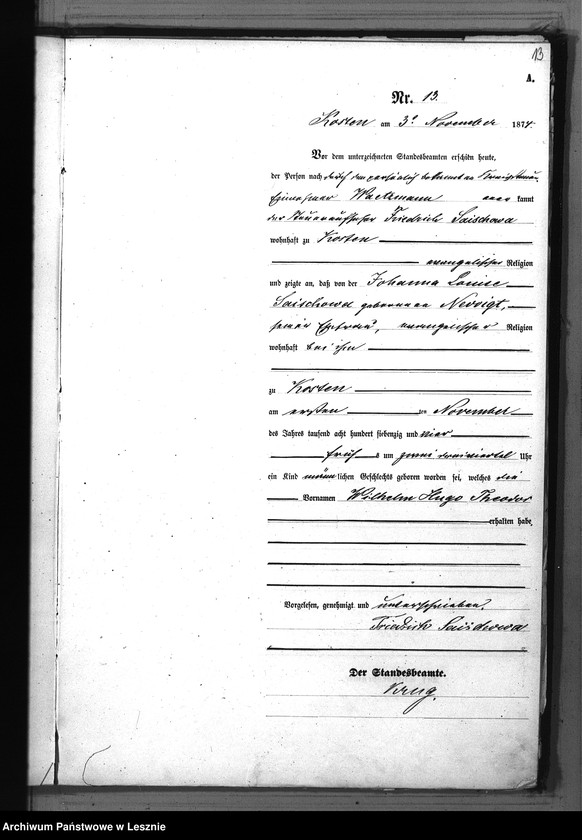 13
A.
Nr. 13.
Kosten am 3ᵗ November 1874.
Vor dem unterzeichneten Standesbeamten erschien heute,
der Person nach durch den persönlich bekannten
Wachmann kannt
der Steueraufseher Friedrich Saischowa
wohnhaft zu Kosten
evangelischer Religion
und zeigte an, daß von der Johanna Louise
Saischowa geborenen Neoigt,
seiner Ehefrau, evangelischer Religion
wohnhaft bei ihm
zu Kosten
am ersten November
des Jahres tausend acht hundert siebenzig und vier
früh s um zwei dreiviertel Uhr
ein Kind männlichen Geschlechts geboren worden sei, welches die
Vornamen Wilhelm Hugo Theodor
erhalten habe.
Vorgelesen, genehmigt und unterschrieben.
Friedrich Saischowa
Der Standesbeamte.
Krug.
Archiwum Państwowe w Lesznie